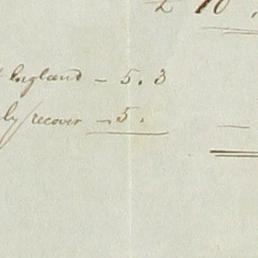 £ 10
England - 5. 3
recover - 5.